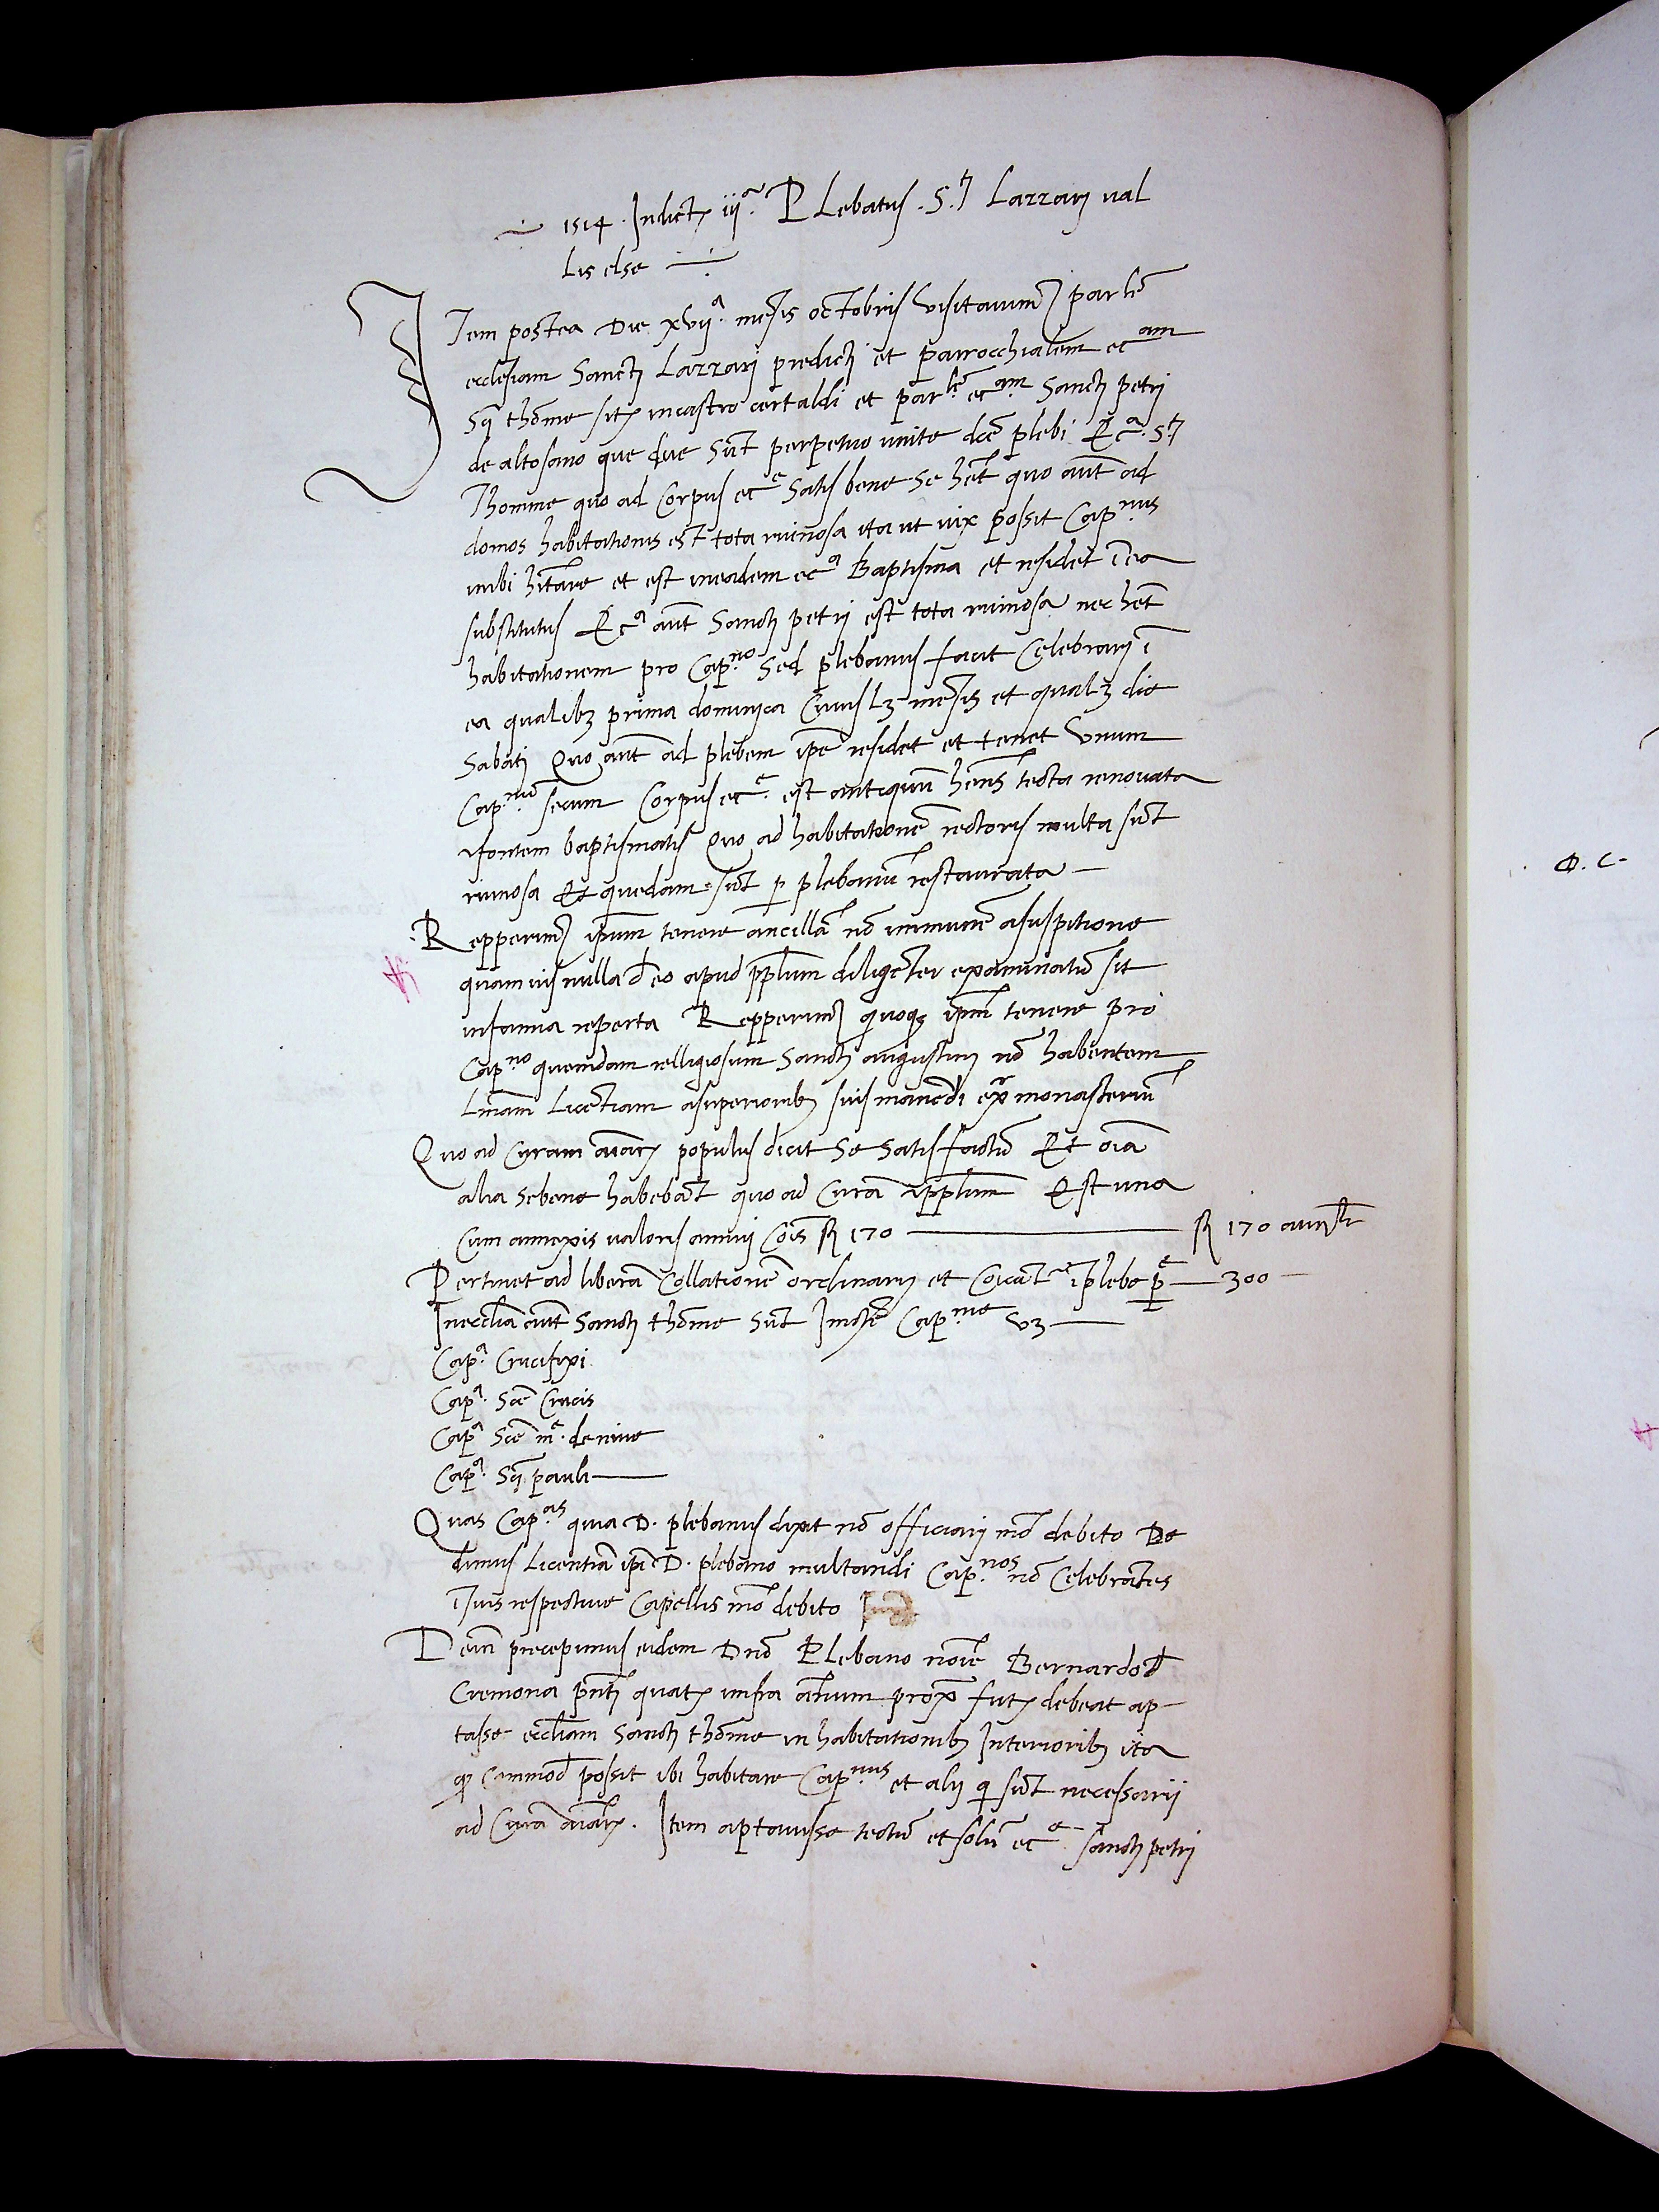 1514. Indictṣ iijª. PLebatus. S.ti Lazzarj ual
Lis else
Item postea Die xvijª. mēsis octobris visitauimus parlē
ecclesiam Sancti Lazzarj predicti et parrocchialem ecam
Sti thōme sitṣ in castro certaldi et parlē. ecam. Sancti petrj
de altosano que due sūt perpetuo unite dcē plebi Ecª. Sti
Thomme quo ad Corpus ece Satis bene se hēt quo aūt ad
domos habitationis est tota ruinosa ita ut uix possit Cap.nus
inibi hitāre et est in eadem ecª Baptisma et residet ī ea
substitutus Ecª aūt Sancti petrij est tota ruinosa nec hēt
habitationem pro Cap.no Sed plebanus facit Celebrarj ī
ea qualibꝫ prima dominica Cuiuslꝫ mēsis et qualꝫ die
Sabati Quo aūt ad plebem ipē residet et tenet vnum
Cap.num secum Corpus ece. est antiquū hēns tecta renouata
fontem baptismatis Quo ad habitationē rectoris multa sūt
ruinosa Et quedam sūt p plebanū restaurata
Repperimus ipum tenere ancillā nō immunē a suspitione
quamuis nulla d eo apud pplum diligēter examinatū sit
infamia reperta Repperimus quoqꝫ ipm tenere pro
Cap.no quemdam relligiosum Sancti augustinj nō habentem
Lram Licētiam a superioribꝫ suis manēdi exr monasteriū
Quo ad Curam aīarṣ populus dicit Se Satisfactū Et oīa
alia se bene habebāt quo ad Curā ipplum Est una
Cum annexis ualoris annuj Cōis ƒl 170 ƒl 170 aurj
Pertinet ad liberā Collationē ordinarij et Coicāt ī plebe pe 300
In ecclia aūt Sancti thōme sūt Cap.ne vꝫ
Cap.ª Crucifixi
Cap.ª. Scē Crucis
Cap.ª Scē me. de niue
Cap.ª. Sti pauli
Quas Cap.as quia D. plebanus dixit nō officiarj mō debito De
dimus Licentiā ipi D. plebano multandi Cap.nos nō Celebrātes
ī suis respectiue Capellis mō debito
Dein precepimus eidem Dnō Plebano noīe Bernardo d
Cremona pntj quatṣ infra annum prox futṣ debeat ap-
tasse eccliam Sancti thōme in habitationibꝫ Interioribꝫ ita
qꝫ Commod possit ibi habitare Cap.nus et alij qi sūt necessarij
ad Curā aīarṣ. Item aptauisse tectū et solū ece. sancti petrj
O. C.